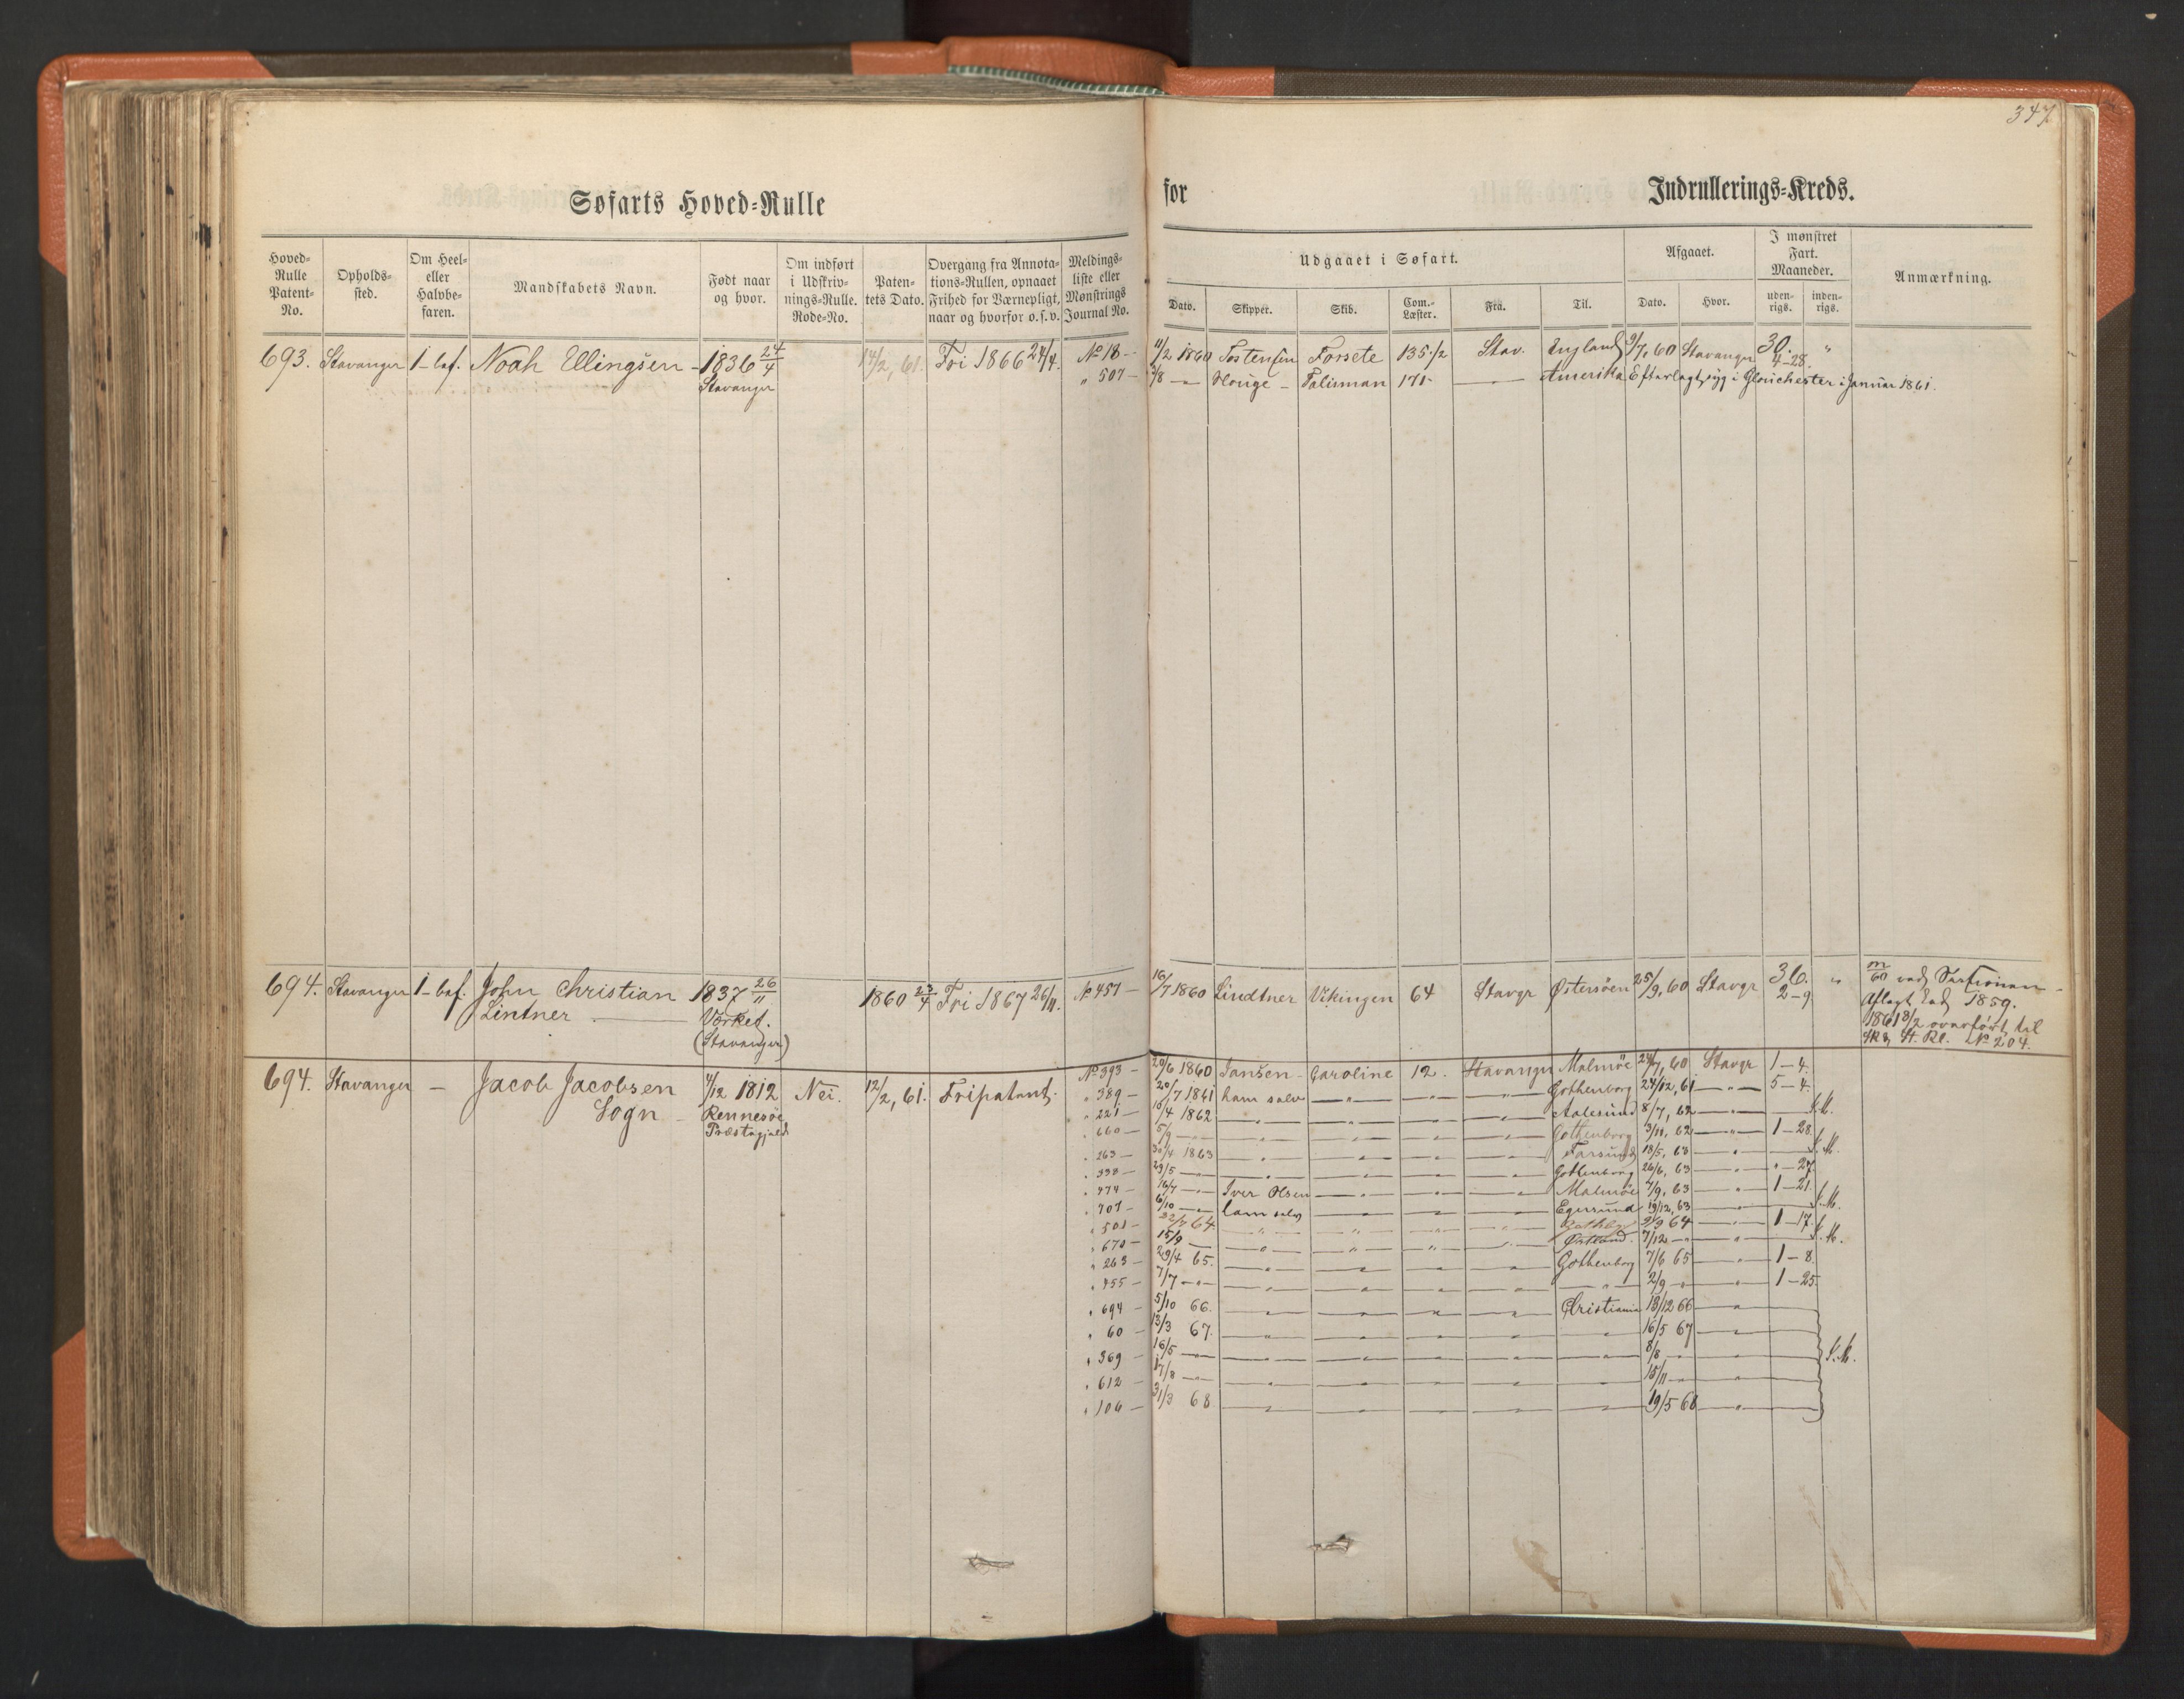 347
Søfarts Hoved-Rulle for Indrullerings-Kreds.
Hoved-Rulle Patent-No. Opholds-sted. Om Heel- eller Halvbe-faren. Mandskabets Navn. Født naar og hvor. Om indført i Udskriv-nings-Rulle. Rode-No. Paten-tets Dato. Overgang fra Annota-tions-Rullen, opnaaet Frihed for Værnepligt, naar og hvorfor o.s.v. Meldings-liste eller Mønstrings Journal No.
Udgaaet i Søfart. Afgaaet. I mønstret Fart. Maaneder. Anmærkning.
Dato. Skipper. Skib. Com.-Læster. Fra. Til. Dato. Hvor. uden-rigs. inden-rigs.
693. Stavanger 1-bef. Noah Ellingsen - 1836 24/4 14/2, 61. Fri 1866 24/4. No 18 - 11/2 1860 Tostensen Forsete 135 1/2 Stav. England 9/7, 60 Stavanger 30. "
Stavanger " 507 - 3/8 - " - Houge - Talisman 171 - Amerika Efterlagt syg i Glouchester i Januar 1861. 4-28.
694. Stavanger 1-bef. John Christian 1837 26/11 1860 23/4 Fri 1867 26/11. No 457 - 16/7 1860 Lindtner Vikingen 64 Stavgr Østersøen 25/9, 60 Stavgr 36. "
Lintner Værket. 2-9
(Stavanger)
Aflagt 1859.
1861 8/2 overført til
St. Rl. No 204.
694. Stavanger - Jacob Jacobsen 4/12 1812 Nei. 12/2, 61. Fripatent. No 393 - 20/6 1860 Jansen - Caroline 12. Stavanger Malmöe 24/7, 60 Stavgr 1-4.
Sogn - Rennesøe " 389 - 20/7 1861 ham selv - " - Gothenborg 24/12, 61 - " - 5-4.
Præstegjeld " 221 - 10/4 1862 - " - Aalesund 8/7, 62 - " -
" 660 - 5/9 - " - Gothenborg 3/11, 62 - " - 1-28.
" 263 - 30/4 1863 - " - Farsund 18/5, 63 - " -
" 338 - 29/5 - " - Gothenborg 26/6, 63 - " - " - 27
" 474 - 16/7 - " - Iver Olsen - " - Malmöe 7/9, 63 - " - 1-21.
" 707 - 6/10 - " - ham selv - " - Egersund 19/12, 63 - " -
" 501 - 22/7 64 " " " " 2/9 64 - " - 1-17.
" 670 - 15/9 - " " " " Østland 7/12 - " -
" 263 - 29/4 65. - " - Gothenborg 7/6 65 - " - 1-8.
" 455 - 7/7 - " - 2/9 - " - 1-25.
" 694 - 5/10 66. - " - Christiania 18/12 66 - " -
" 60 - 13/3 67. - " - 16/5 67 - " -
" 369 - 16/5 - " - 8/8 - " -
" 612 - 17/8 - " - 15/11 - " -
" 106 - 31/3 68 - " - 19/5 68 - " -